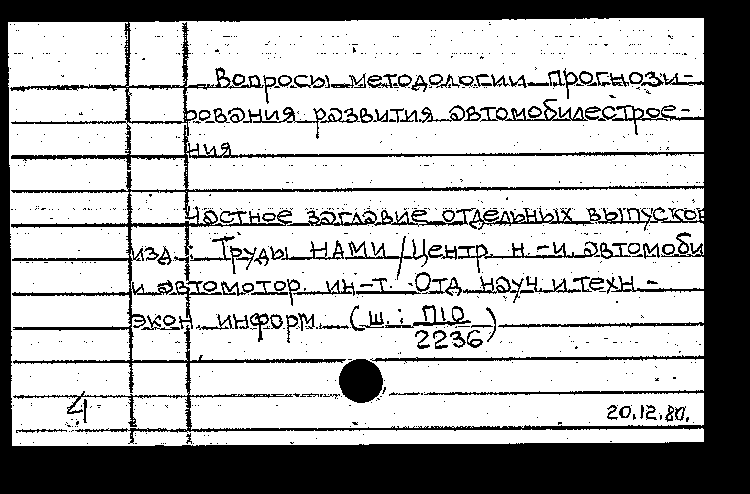 Вопросы методологии прогнози-
рования развития автомобилестрое-
ния
Частное заглавие отдельных выпусков
изд.: Труды НАМИ / Центр. н.-и. автомоби
и автомотор. ин-т. Отд. науч. и техн.-
экон. информ. (ш.: П10
2236)
4
20.12.80.